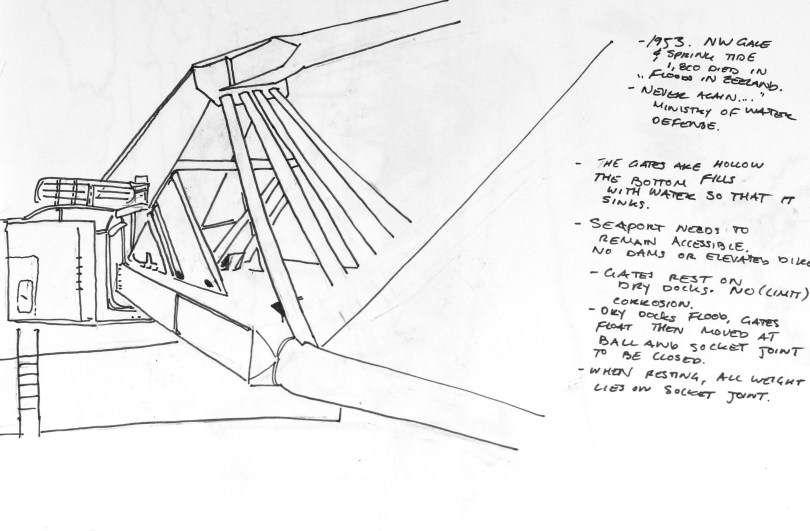 - 1953. NW GALE
& SPRING TIDE
1,800 DIED IN
"FLOODS IN ZEELAND.
- NEVER AGAIN...."
MINISTRY OF WATER
DEFENSE.
- THE GATES ARE HOLLOW
THE BOTTOM FILLS
WITH WATER SO THAT IT
SINKS.
- SEAPORT NEEDS TO
REMAIN ACCESSIBLE.
NO DAMS OR ELEVATED DIKE
- GATES REST ON
DRY DOCKS. NO (LIMIT)
CORROSION.
- DRY DOCKS FLOOD, GATES
FLOAT THEN MOVED AT
BALL AND SOCKET JOINT
TO BE CLOSED.
- WHEN RESTING, ALL WEIGHT
LIES ON SOCKET JOINT.